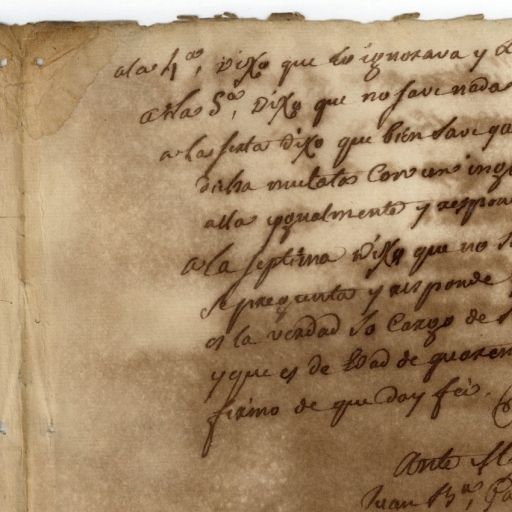 a la 4ª, Dixo que lo ignorava y
a la 5ª, Dixo que no save nada
a la sexta Dixo que bien save que
dicha mulata Con un
alla ygualmente y
a la septima Dixo que no
se pregunta y responde
es la verdad so Cargo de
y que es de Edad de quaren
firmo de que doy feé.
Ante
Juan